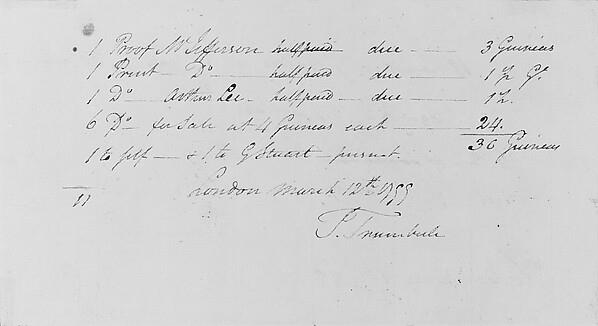 1 Proof Mr Jefferson half paid due — 3 Guineas
1 Print Do — half paid due — 1½ G.
1 Do — Arthur Lee — half paid — due — 1½.
6 Do — for Sale at 4 Guineas each — 24.
1 to self — & 1. to G Stuart — 30 Guineas
11
London March 12th 1799
J. Trumbull